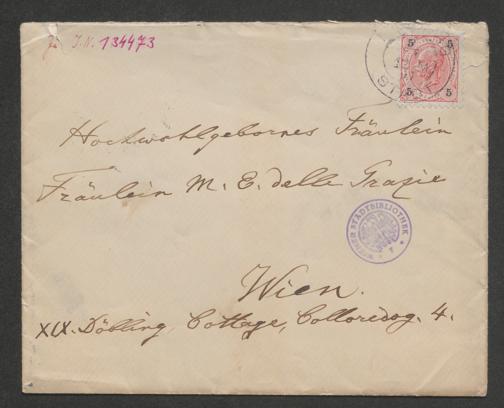 J.N. 134473
5 5
5 5
Hochwohlgebornes Fräulein
Fräulein M. E. delle Grazie
WIENER STADTBIBLIOTHEK
Wien.
XIX. Döbling, Cottage, Colloredog. 4.